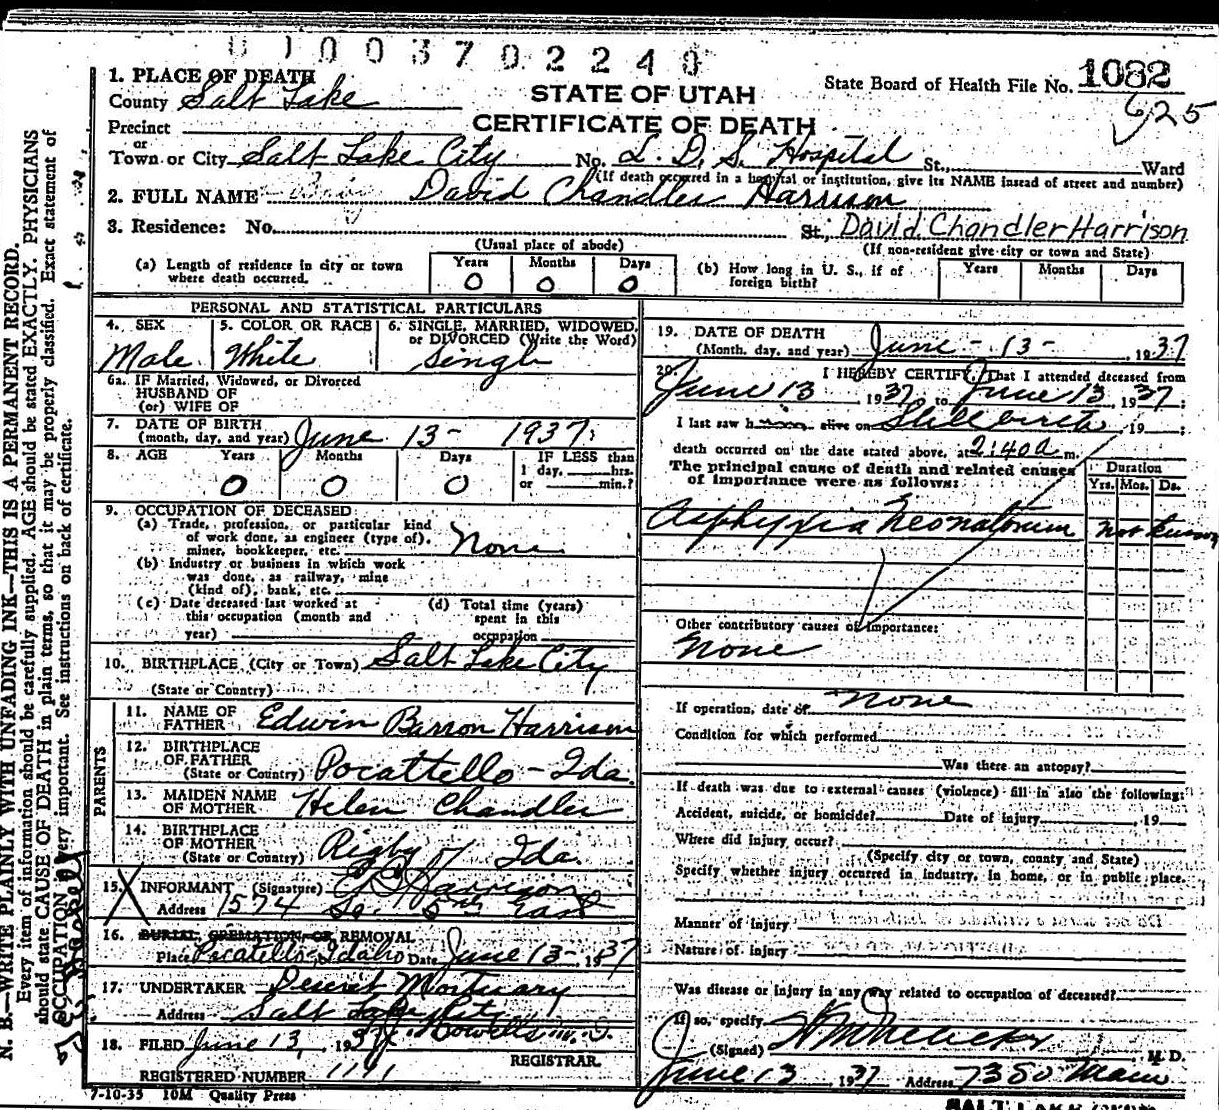 0 1 0 0 3 7 0 2 2 4 0
1. PLACE OF DEATH
County Salt Lake
STATE OF UTAH
CERTIFICATE OF DEATH
State Board of Health File No. 1082
625
Precinct
or
Town or City Salt Lake City No. L. D. S. Hospital St., Ward
(If death occurred in a hospital or institution, give its NAME instead of street and number)
2. FULL NAME David Chandler Harrison
3. Residence: No. St., David Chandler Harrison
(Usual place of abode) (If non-resident give city or town and State)
(a) Length of residence in city or town where death occurred. Years 0 Months 0 Days 0
(b) How long in U. S., if of foreign birth? Years Months Days
PERSONAL AND STATISTICAL PARTICULARS
4. SEX Male
5. COLOR OR RACE White
6. SINGLE, MARRIED, WIDOWED, or DIVORCED (Write the Word) Single
6a. IF Married, Widowed, or Divorced
HUSBAND OF
(or) WIFE OF
7. DATE OF BIRTH
(month, day, and year) June 13 - 1937
8. AGE Years 0 Months 0 Days 0 IF LESS than
1 day, hrs.
or min.?
9. OCCUPATION OF DECEASED:
(a) Trade, profession, or particular kind
of work done, as engineer (type of),
miner, bookkeeper, etc. None
(b) Industry or business in which work
was done, as railway, mine
(kind of), bank, etc.
(c) Date deceased last worked at
this occupation (month and
year)
(d) Total time (years)
spent in this
occupation
10. BIRTHPLACE (City or Town) Salt Lake City
(State or Country)
PARENTS
11. NAME OF
FATHER Edwin Barron Harrison
12. BIRTHPLACE
OF FATHER
(State or Country) Pocattello - Ida.
13. MAIDEN NAME
OF MOTHER Helen Chandler
14. BIRTHPLACE
OF MOTHER
(State or Country) Rigby Ida.
15. INFORMANT (Signature) E B Harrison
Address 1574 So. 5th East
16. BURIAL, CREMATION OR REMOVAL
Place Pocatello Idaho Date June 13 - 1937
17. UNDERTAKER Deseret Mortuary
Address Salt Lake City
18. FILED June 13, 1937 Howells M. D.
REGISTRAR.
REGISTERED NUMBER 1191
7-10-35 10M Quality Press
19. DATE OF DEATH
(Month, day, and year) June - 13 - , 1937
20. I HEREBY CERTIFY, That I attended deceased from
June 13 1937, to June 13, 1937;
I last saw h alive on Stillbirth, 19 ;
death occurred on the date stated above, at 2:40a m.
The principal cause of death and related causes
of importance were as follows:
Duration
Yrs. Mos. Ds.
Asphyxia Neonatorium not known
Other contributory causes of importance:
None
If operation, date of none
Condition for which performed
Was there an autopsy?
If death was due to external causes (violence) fill in also the following:
Accident, suicide, or homicide? Date of injury , 19
Where did injury occur?
(Specify city or town, county and State)
Specify whether injury occurred in industry, in home, or in public place.
Manner of injury
Nature of injury
Was disease or injury in any way related to occupation of deceased?
If so, specify
(Signed) M. D.
June 13, 1937 Address Main
N. B.—WRITE PLAINLY WITH UNFADING INK—THIS IS A PERMANENT RECORD.
Every item of information should be carefully supplied. AGE should be stated EXACTLY. PHYSICIANS
should state CAUSE OF DEATH in plain terms, so that it may be properly classified. Exact statement of
OCCUPATION is very important. See instructions on back of certificate.